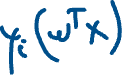 yᵢ(wᵀx)